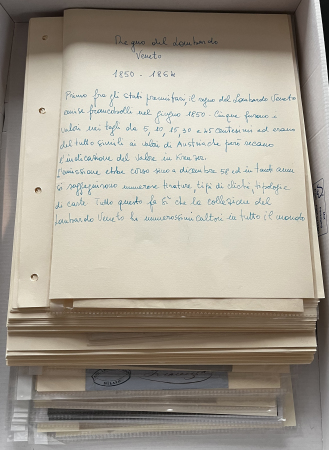 Regno del Lombardo
Veneto
1850 - 1864
Primo fra gli stati preunitari il regno del Lombardo Veneto
emise francobolli nel giugno 1850. Cinque furono i
valori nei tagli da 5, 10, 15, 30 e 45 centesimi ed erano
del tutto simili ai valori di Austria che però recano
l'indicazione del valore in Kreuzer.
L'emissione ebbe corso sino a dicembre 58 ed in tanti anni
si raggiunsero numerose tirature, tipi di clichè, tipologie
di carte. Tutto questo fa sì che la collezione del
Lombardo Veneto ha numerosissimi cultori in tutto il mondo